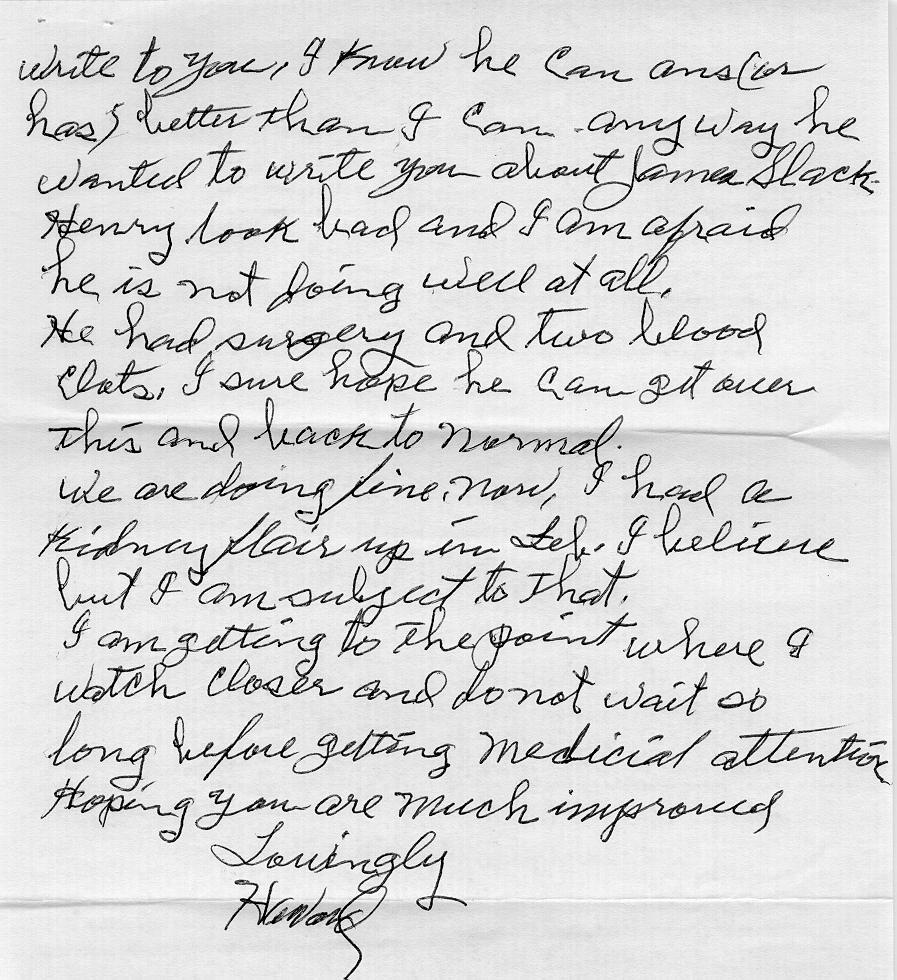 write to you, I know he can ans(or
has) better than I can anyway he
wanted to write you about James Slack
Henry look bad and I am afraid
he is not doing well at all.
He had surgery and two blood
Clots, I sure hope he can get over
this and back to normal.
We are doing fine now, I had a
Kidney flair up in Feb. I believe
but I am subject to that.
I am getting to the point where I
watch closer and do not wait so
long before getting medicial attention
Hoping you are much improved
Lovingly